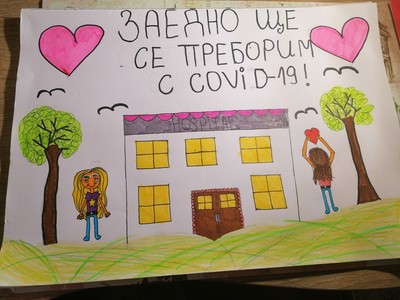 ЗАЕДНО ЩЕ
СЕ ПРЕБОРИМ
С COViD-19!
HOSPITAL